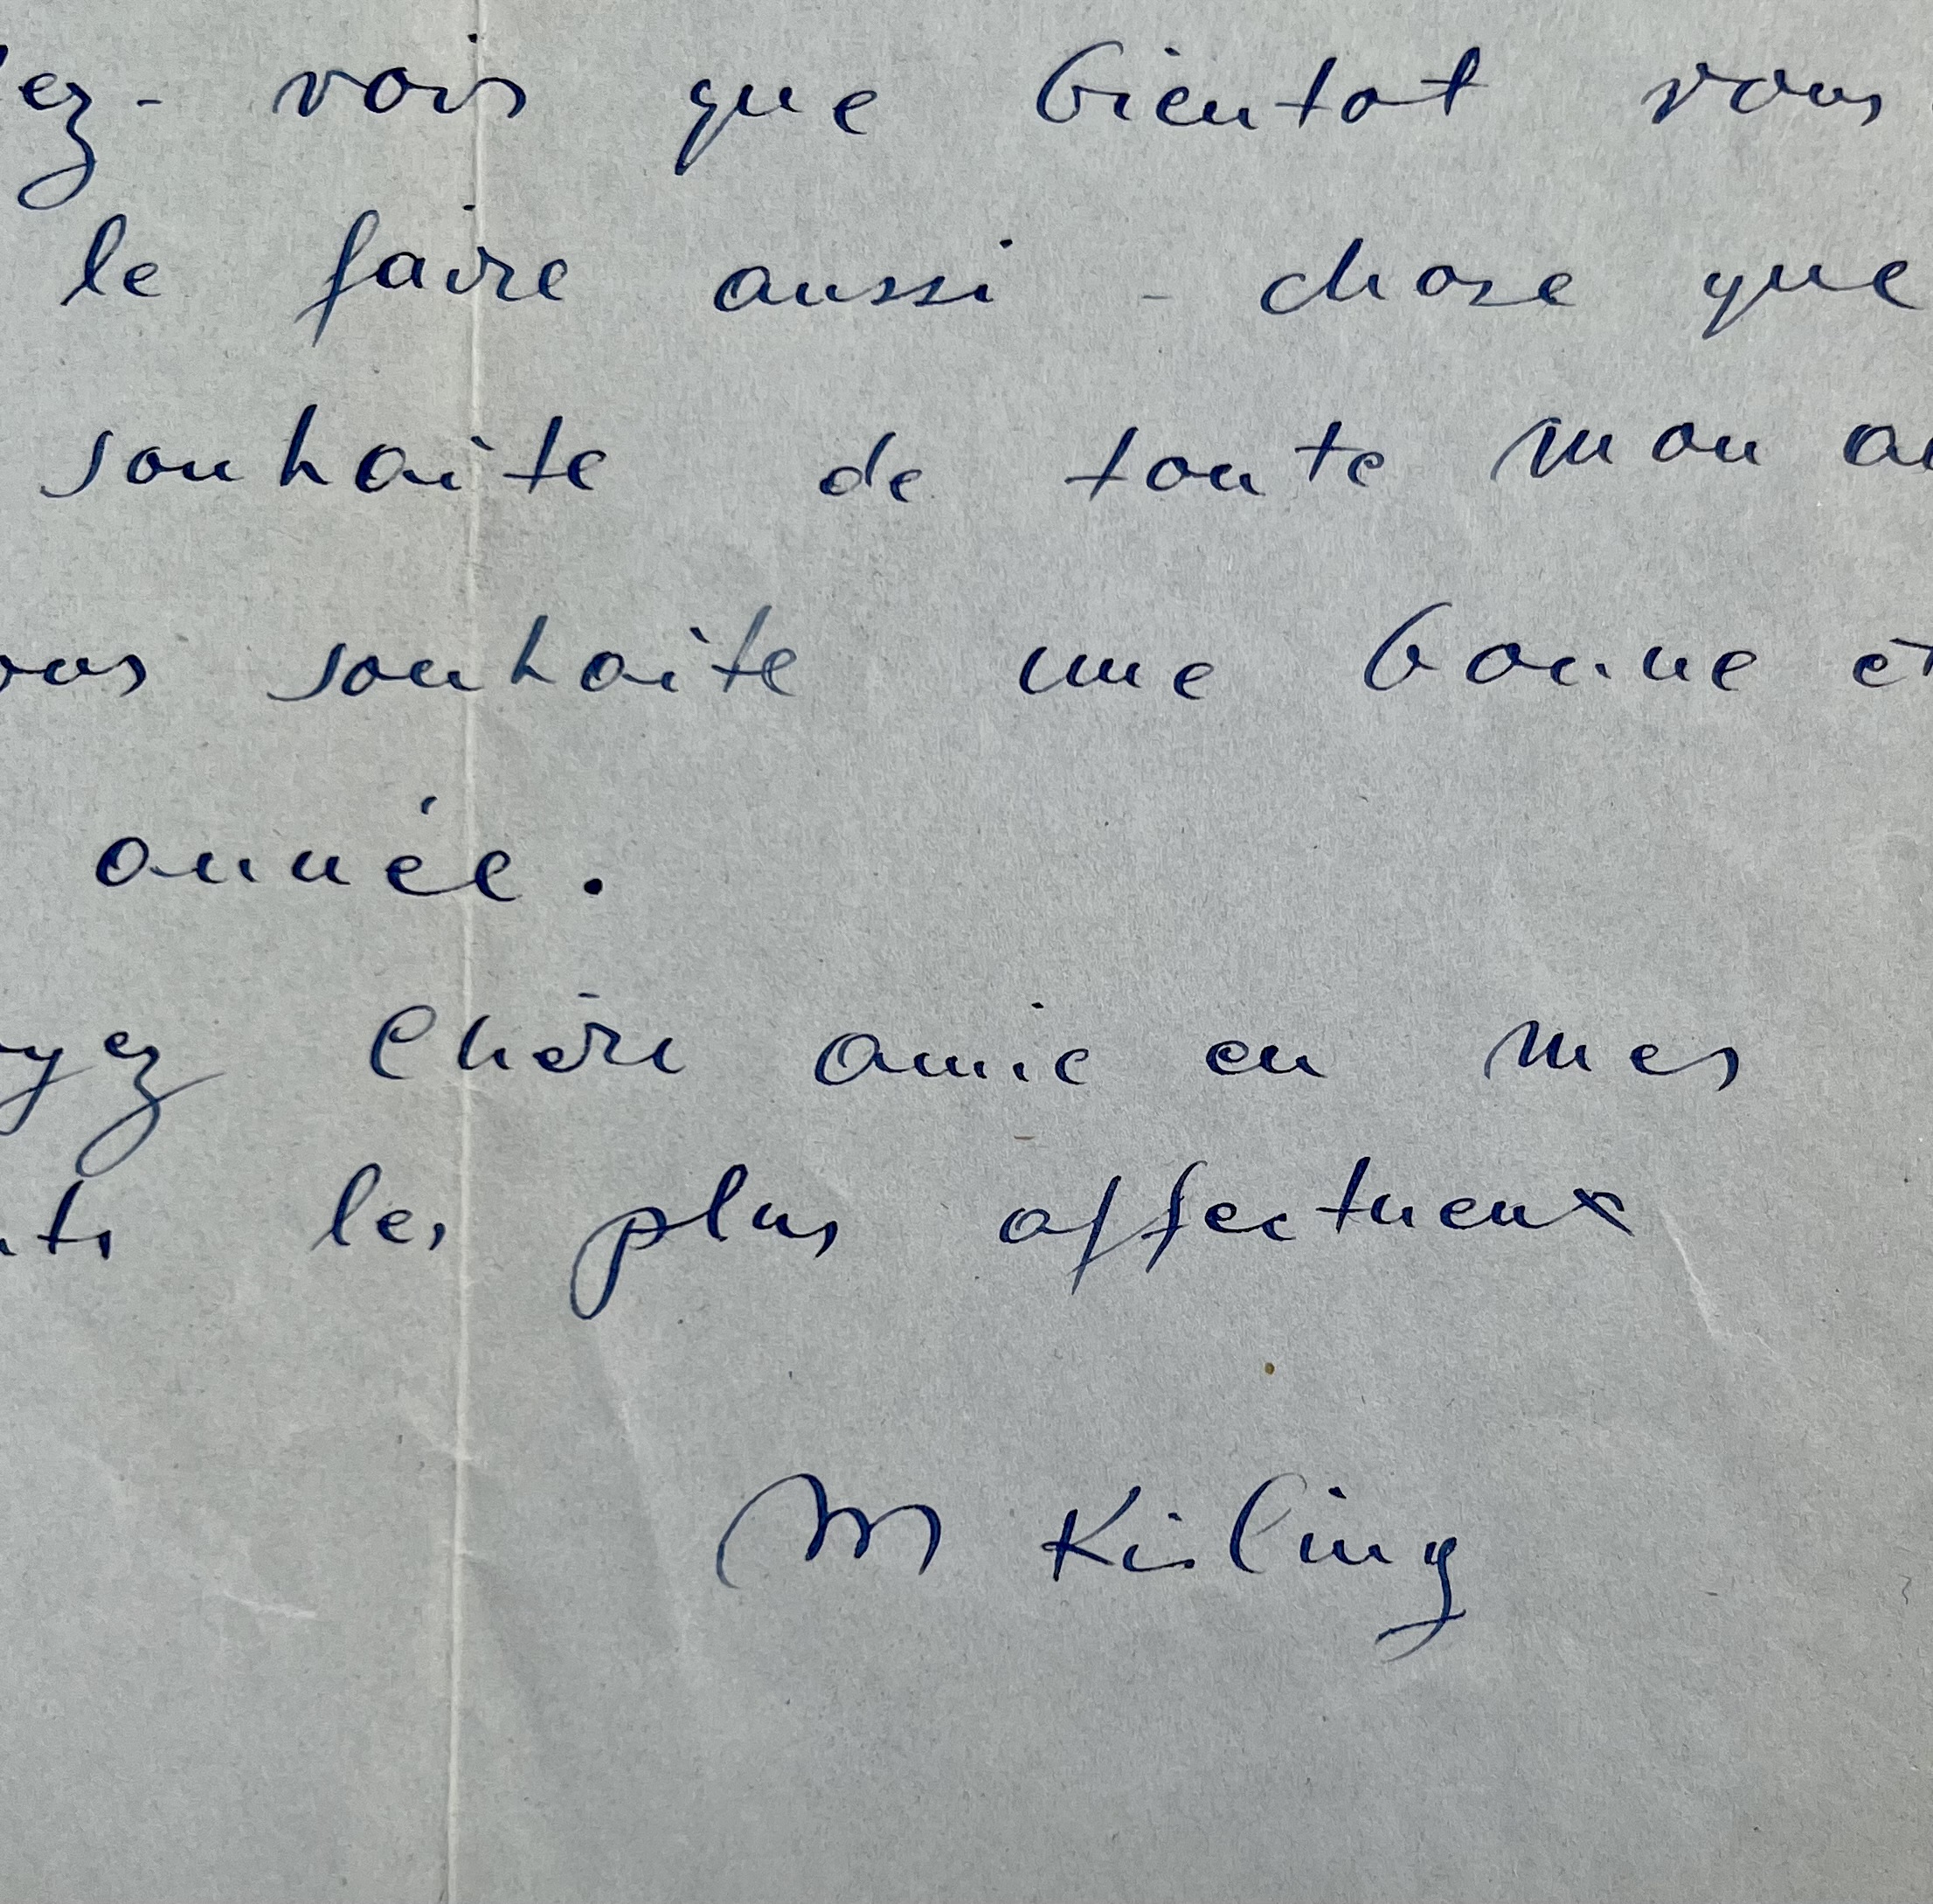 ez- vois que bientot vous
le faire aussi - chose que
souhaite de toute mon
ous souhaite une bonne et
année.
yez Chère amie en mes
nts les plus affectueux
M Kisling